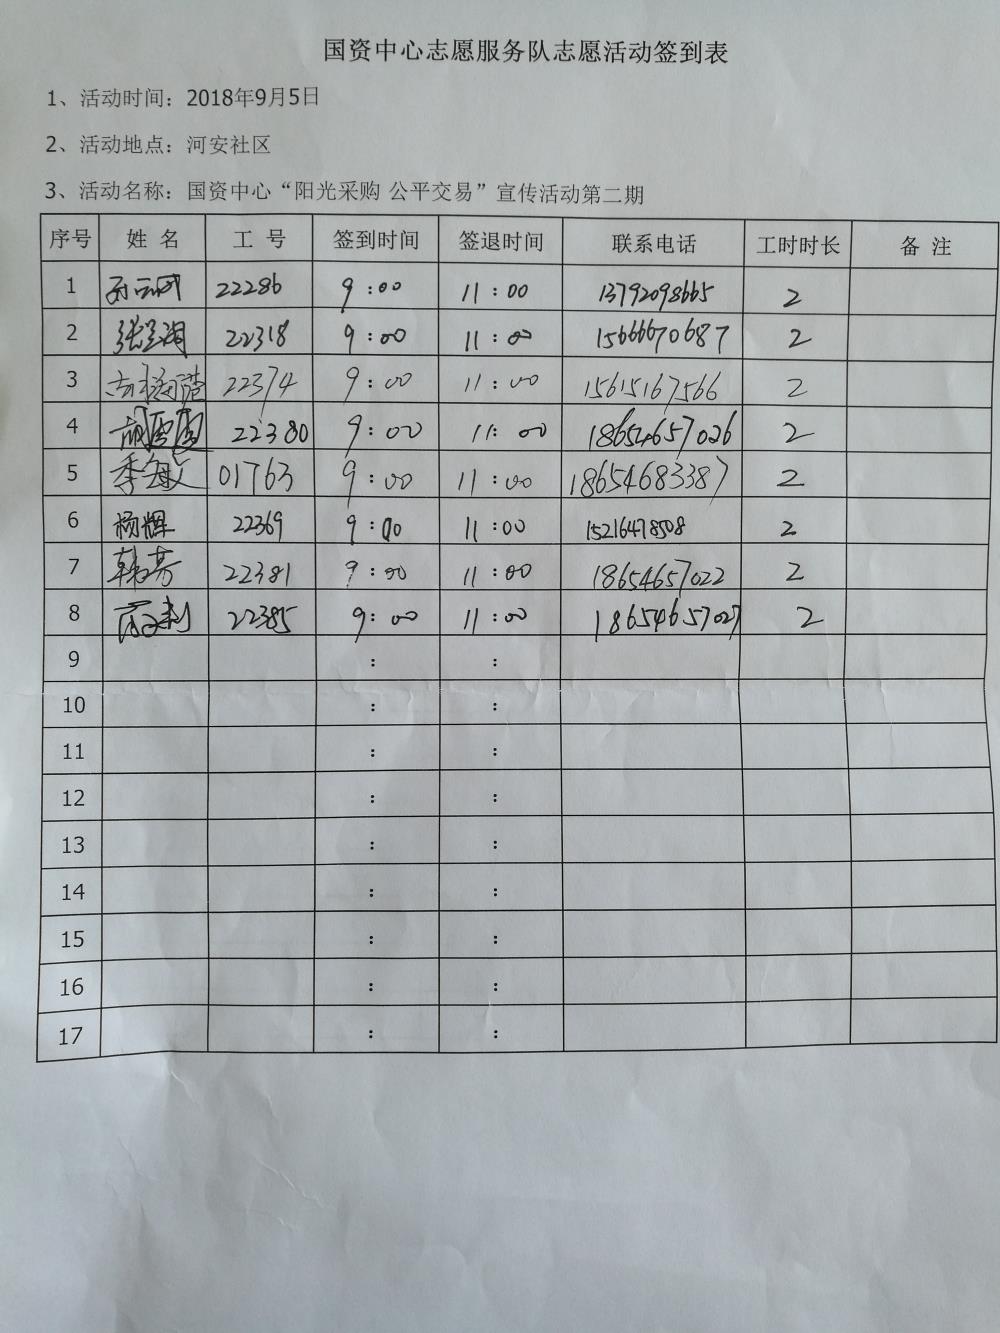 国资中心志愿服务队志愿活动签到表
1、活动时间：2018年9月5日
2、活动地点：河安社区
3、活动名称：国资中心“阳光采购 公平交易”宣传活动第二期
序号 姓 名 工 号 签到时间 签退时间 联系电话 工时时长 备 注
1 22286 9:00 11:00 13792098665 2
2 22318 9:00 11:00 15666670687 2
3 22374 9:00 11:00 15615167566 2
4 胡雪 22380 9:00 11:00 18654657026 2
5 季敏 01763 9:00 11:00 18654683387 2
6 杨辉 22369 9:00 11:00 15216478508 2
7 韩芳 22381 9:00 11:00 18654657022 2
8 22385 9:00 11:00 18654657027 2
9 : :
10 : :
11 : :
12 : :
13 : :
14 : :
15 : :
16 : :
17 : :